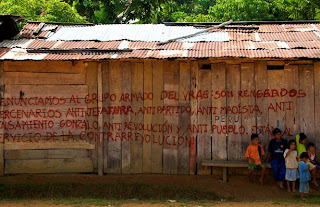 DENUNCIAMOS AL GRUPO ARMADO DEL VRAE SON RENEGADOS
MERCENARIOS ANTIJEFATURA, ANTI PARTIDO, ANTI MAOISTA, ANTI
PENSAMIENTO GONZALO, ANTI REVOLUCIÓN Y ANTI PUEBLO, ESTA AL
PERU
SERVICIO DE LA CONTRARREVOLUCION